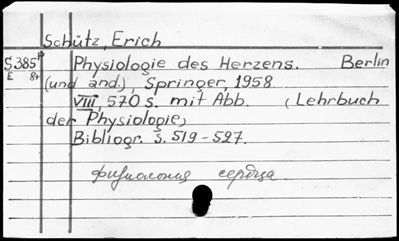 Schütz, Erich
S 385 P Physiologie des Herzens. Berlin
E 84 (und and.), Springer, 1958.
VIII, 570 s. mit Abb. (Lehrbuch
der Physiologie)
Bibliogr. s. 519-527.
физиология сердца.